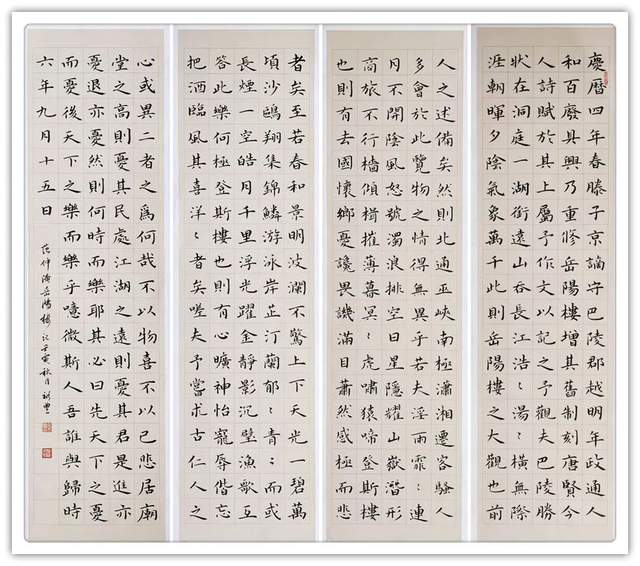 慶曆四年春滕子京謫守巴陵郡越明年政通人
和百廢具興乃重修岳陽樓增其舊制刻唐賢今
人詩賦於其上屬予作文以記之予觀夫巴陵勝
狀在洞庭一湖銜遠山吞長江浩〻湯〻橫無際
涯朝暉夕陰氣象萬千此則岳陽樓之大觀也前
人之述備矣然則北通巫峽南極瀟湘遷客騷人
多會於此覽物之情得無異乎若夫淫雨霏〻連
月不開陰風怒號濁浪排空日星隱耀山嶽潛形
商旅不行檣傾楫摧薄暮冥〻虎嘯猿啼登斯樓
也則有去國懷鄉憂讒畏譏滿目蕭然感極而悲
者矣至若春和景明波瀾不驚上下天光一碧萬
頃沙鷗翔集錦鱗游泳岸芷汀蘭郁〻青〻而或
長煙一空皓月千里浮光躍金靜影沉璧漁歌互
答此樂何極登斯樓也則有心曠神怡寵辱偕忘
把酒臨風其喜洋〻者矣嗟夫予嘗求古仁人之
心或異二者之爲何哉不以物喜不以己悲居廟
堂之高則憂其民處江湖之遠則憂其君是進亦
憂退亦憂然則何時而樂耶其必曰先天下之憂
而憂後天下之樂而樂乎噫微斯人吾誰與歸時
六年九月十五日
范仲淹岳陽樓記壬寅秋月